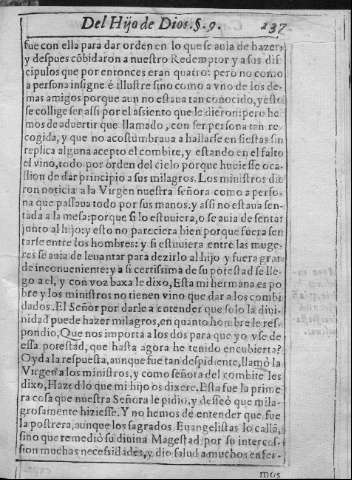 Del Hijo de Dios. §. 9. 237
fue con ella para dar orden en lo que se auia de hazer,
y despues cõbidaron a nuestro Redemptor y a sus dis
cipulos que por entonces eran quatro: pero no como
a persona insigne è illustre sino como a vno de los de-
mas amigos porque aun no estaua tan conocido, y esto
se collige ser assi por el assiento que le dieron: pero he
mos de aduertir que llamado, con ser persona tan re-
cogida, y que no acostũbraua a hallarse en fiestas sin
replica alguna acepto el combite, y estando en el falto
el vino, todo por orden del cielo porque huuiesse oca-
sion de dar principio a sus milagros. Los ministros die
ron noticia a la Virgen nuestra señora como a perso-
na que passaua todo por sus manos, y assi no estaua sen-
tada a la mesa: porque si lo estuuiera, o se auia de sentar
junto al hijo, y esto no pareciera bien porque fuera sen
tarse entre los hombres: y si estuuiera entre las muge-
res se auia de leuantar para dezirlo al hijo y fuera gran
de inconueniente: y a si certissima de su potestad se lle-
go a el, y con voz baxa le dixo, Esta mi hermana es po
bre y los ministros no tienen vino que dar a los combi
dados. El Señor por darle a entender que solo la diui-
nidad puede hazer milagros, en quanto hombre le res-
pondio, Que nos importa a los dos para que yo vse de
essa potestad, que hasta agora he tenido encubierta?
Oyda la respuesta, aunque fue tan despidiente, llamò la
Virgen a los ministros, y como señora del combite les
dixo, Hazed lo que mi hijo os dixere. Esta fue la prime
ra cosa que nuestra Señora le pidio, y desseò que mila-
grosamente hiziesse. Y no hemos de entender que fue
la postrera, aunque los sagrados Euangelistas lo callã,
sino que remediò su diuina Magestad por su interces-
sion muchas necessidades, y dio salud a muchos enfer-
mos